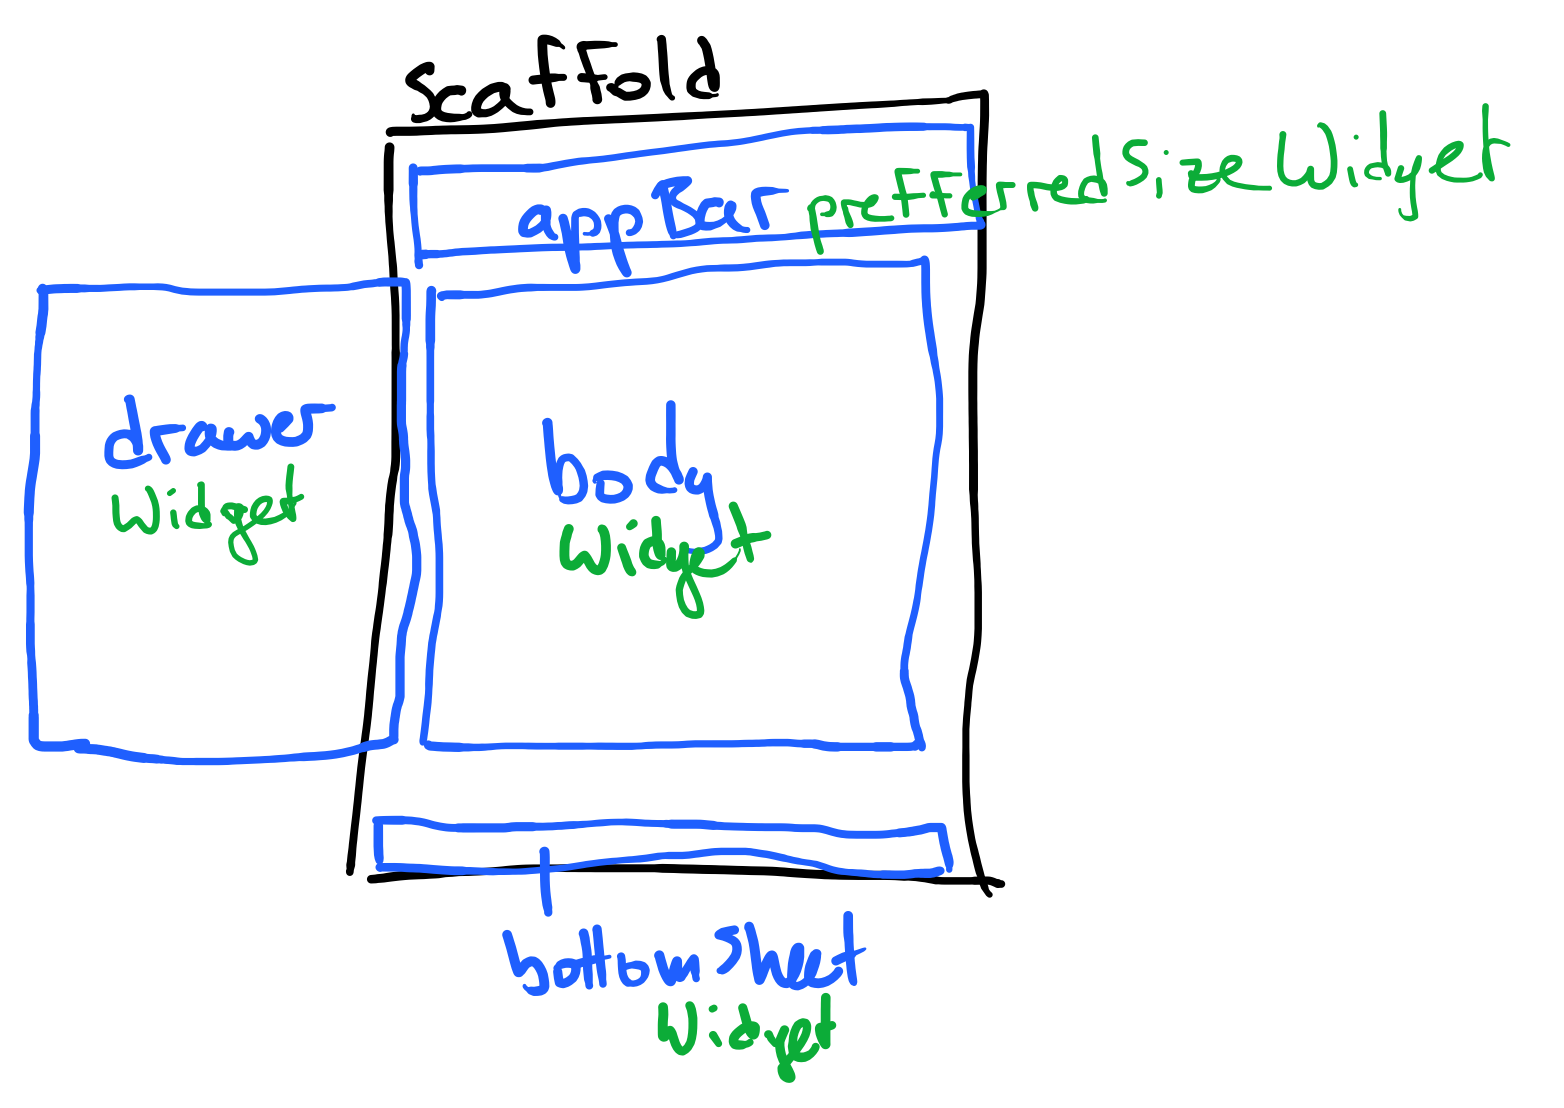 Scaffold
appBar prefferredSizeWidget
drawer
Widget
body
Widget
bottomSheet
Widget